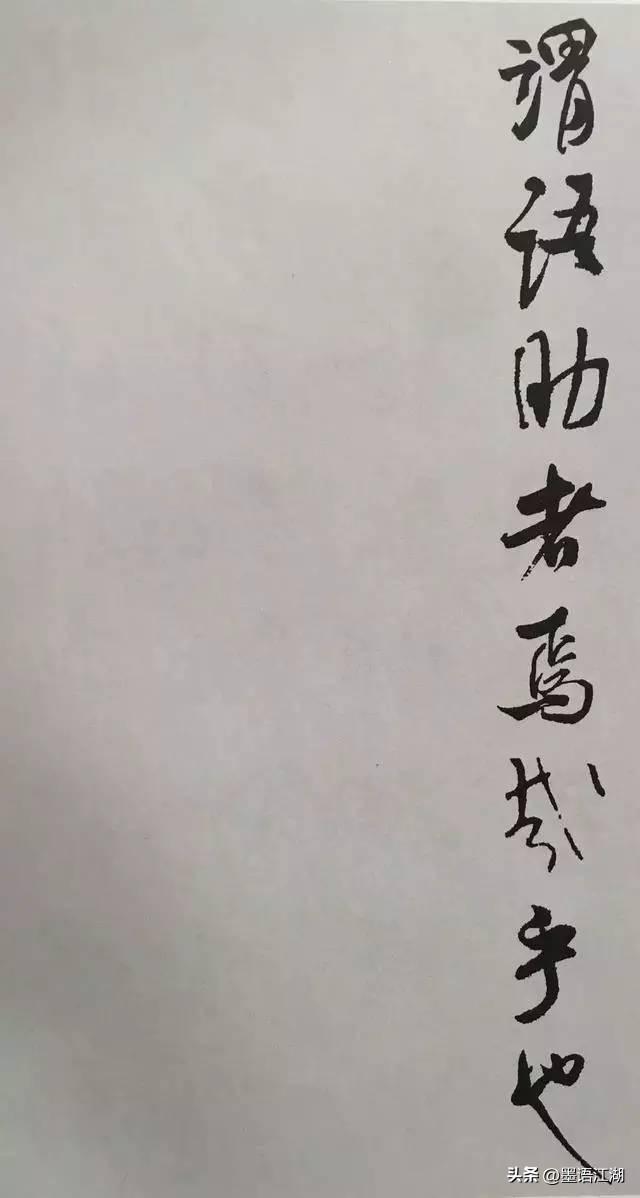 謂語助者焉哉乎也
头条 @墨语江湖